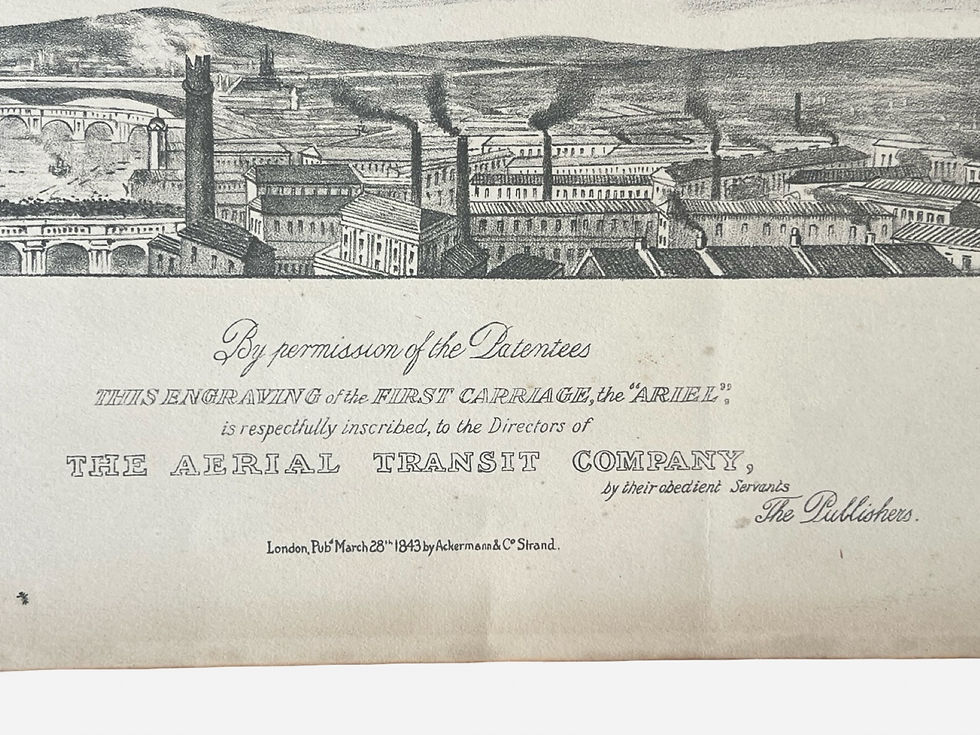 By permission of the Patentees
THIS ENGRAVING of the FIRST CARRIAGE, the "ARIEL",
is respectfully inscribed, to the Directors of
THE AERIAL TRANSIT COMPANY,
by their obedient Servants
The Publishers.
London, Pubd March 28th 1843 by Ackermann & Co Strand.